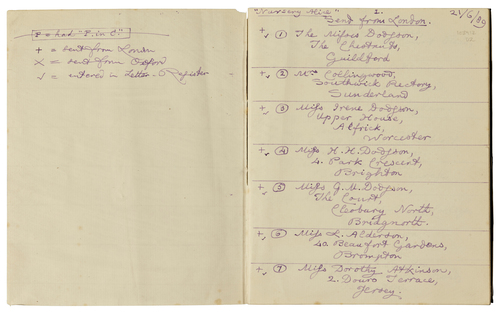 P = had "P. in C"
+ = sent from London
X = sent from Oxford
✓ = entered in Letter-Register
"Nursery Alice" 1. 21/6/89
Sent from London.
+✓ (1) The Misses Dodgson,
The Chestnuts,
Guildford
+✓ (2) Mrs Collingwood,
Southwick Rectory,
Sunderland
+✓ (3) Miss Irene Dodgson,
Upper House,
Alfrick,
Worcester
+✓ (4) Miss H. H. Dodgson,
4. Park Crescent,
Brighton
+✓ (5) Miss G. M. Dodgson,
The Court,
Cleobury North,
Bridgnorth.
+✓ (6) Miss L. Alderson,
40. Beaufort Gardens,
Brompton
+✓ (7) Miss Dorothy Atkinson,
2. Douro Terrace,
Jersey.